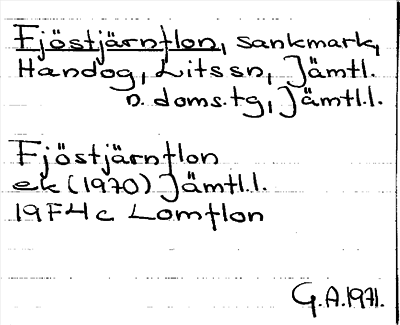 Fjöstjärnflon, sankmark,
Handog, Lits sn, Jämtl.
n. doms.tg, Jämtl.l.
Fjöstjärnflon
ek (1970) Jämtl.l.
19F4c Lomflon
G.A.1971.